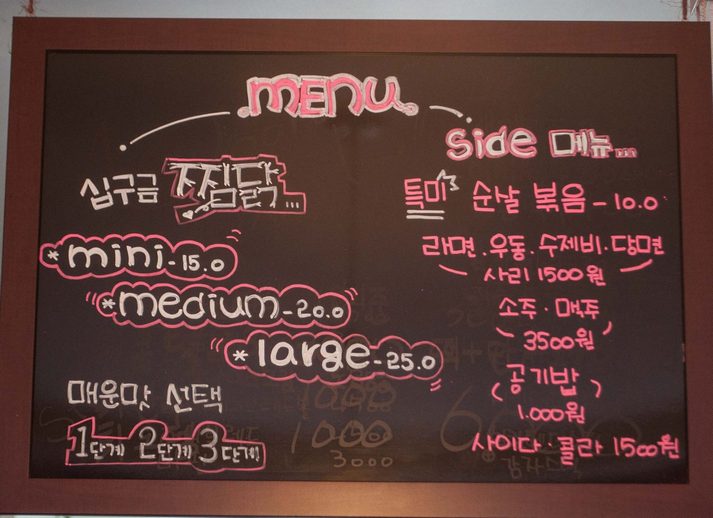 menu
십구금 찜닭...
*mini-15.0
*medium-20.0
*large-25.0
매운맛 선택
1단계 2단계 3단계
side 메뉴...
특미 순살 볶음-10.0
라면.우동.수제비.당면
사리 1500원
소주·맥주
3500원
공기밥
1.000원
사이다·콜라 1500원
1000
3000